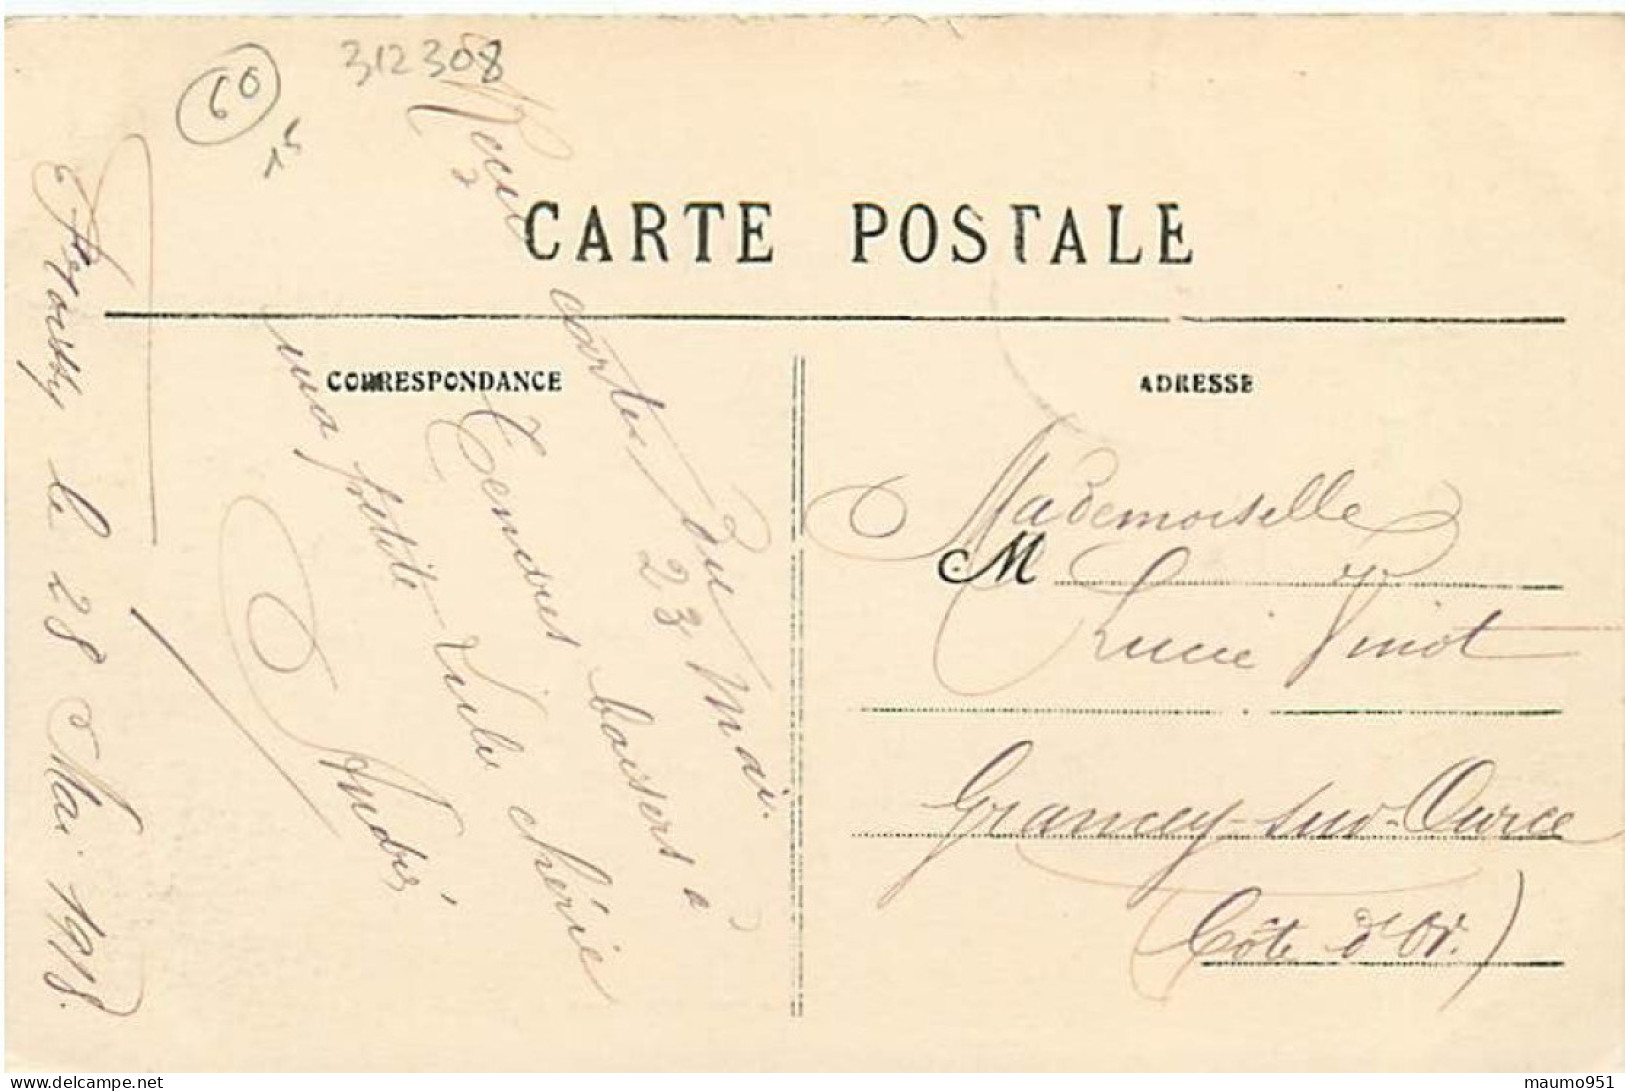 60
15
312308
CARTE POSTALE
CORRESPONDANCE
ADRESSE
le 28 Mai 1918.
Reçu cartes du 23 Mai.
Tendres baisers à
ma petite Lulu chérie
André
Mademoiselle
M
Lucie Vinot
Grancey-sur-Ource
(Côte d'Or.)
delcampe.net
maumo951